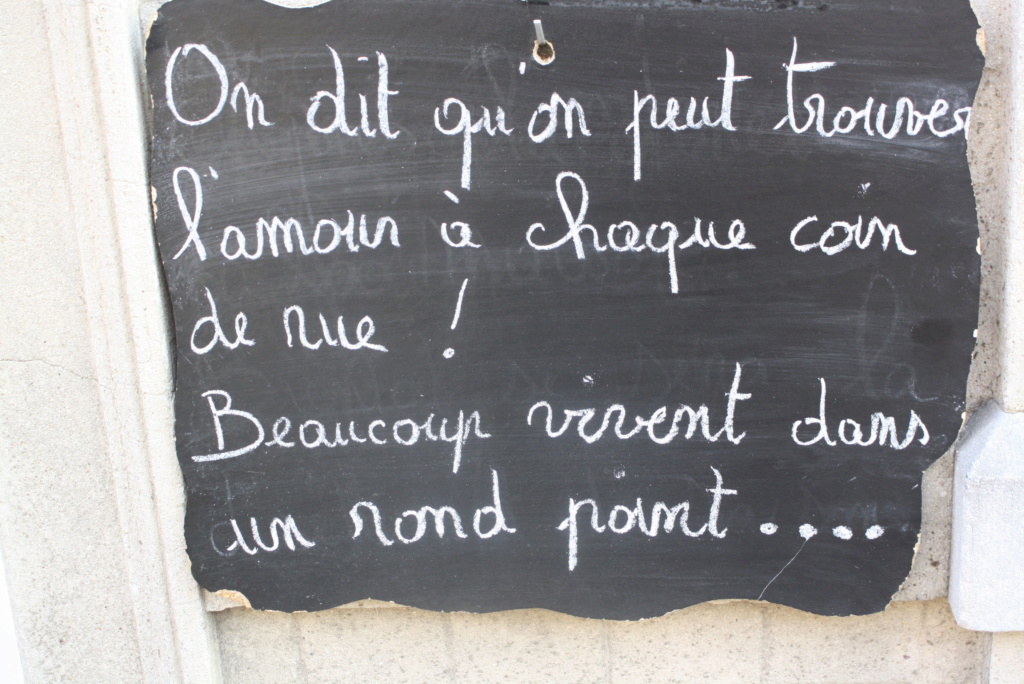 On dit qu'on peut trouver
l'amour à chaque coin
de rue !
Beaucoup vivent dans
un rond point ....